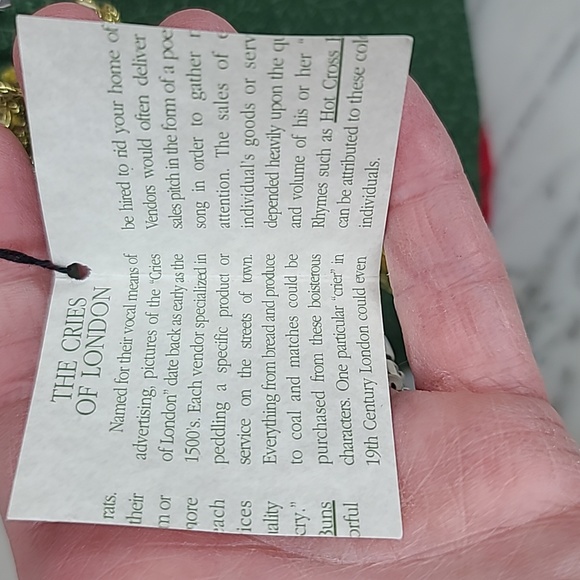 rats.
their
m or
nore
ach
ices
tality
cry."
Buns
orful
THE CRIES
OF LONDON
Named for their vocal means of
advertising, pictures of the "Cries
of London" date back as early as the
1500's. Each vendor specialized in
peddling a specific product or
service on the streets of town.
Everything from bread and produce
to coal and matches could be
purchased from these boisterous
characters. One particular "crier" in
19th Century London could even
be hired to rid your home of
Vendors would often deliver
sales pitch in the form of a poe
song in order to gather
attention. The sales of
individual's goods or serv
depended heavily upon the qu
and volume of his or her "
Rhymes such as Hot Cross
can be attributed to these colo
individuals.